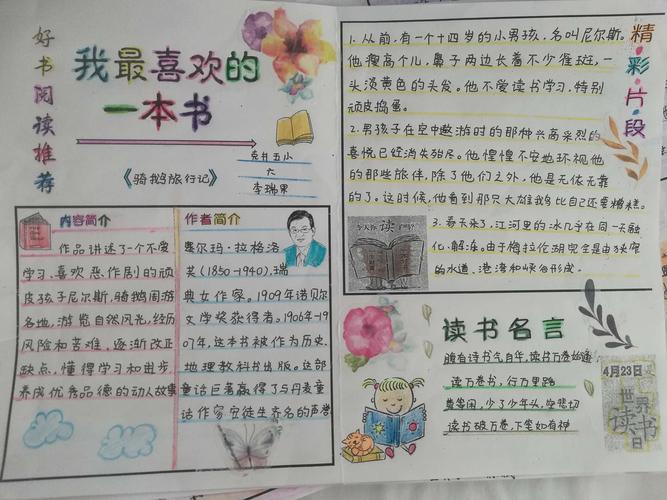 好书阅读推荐
我最喜欢的
一本书
《骑鹅旅行记》
克井五小
六
李瑞果
内容简介
作品讲述了个不爱
学习、喜欢恶作剧的顽
皮孩子尼尔斯,骑鹅周游
各地,游览自然风光,经历
风险和苦难,逐渐改正
缺点,懂得学习和进步,
养成优秀品德的动人故事
作者简介
塞尔玛·拉格洛
芙(1850-1940),瑞
典女作家。1909年诺贝尔
文学奖获得者。1906年-19
07年,这本书被作为历史、
地理教科书出版。这部
童话巨著赢得了与丹麦童
话作家安徒生齐名的声誉
精·彩·片·段
1.从前,有一个十四岁的小男孩,名叫尼尔斯。
他瘦高个儿,鼻子两边长着不少雀斑,一
头淡黄色的头发。他不爱读书学习,特别
顽皮捣蛋。
2.男孩子在空中遨游时的那种兴高采烈的
喜悦已经消失殆尽。他惶惶不安地环视他
的那些旅伴,除了他们之外,他是无依无靠
的了。这时候,他看到那只大雄鹅比自己还要糟糕。
3.春天来了,江河里的冰几乎在同一天融
化、解冻。由于梅拉伦湖完全是由狭窄
的水道、港湾和峡谷形成。
今天你读了吗?
读书名言
腹有诗书气自华,读书万卷始通
读万卷书,行万里路
莫等闲,少了少年头,空悲切
读书破万卷,下笔如有神
4月23日
世界
读书
日